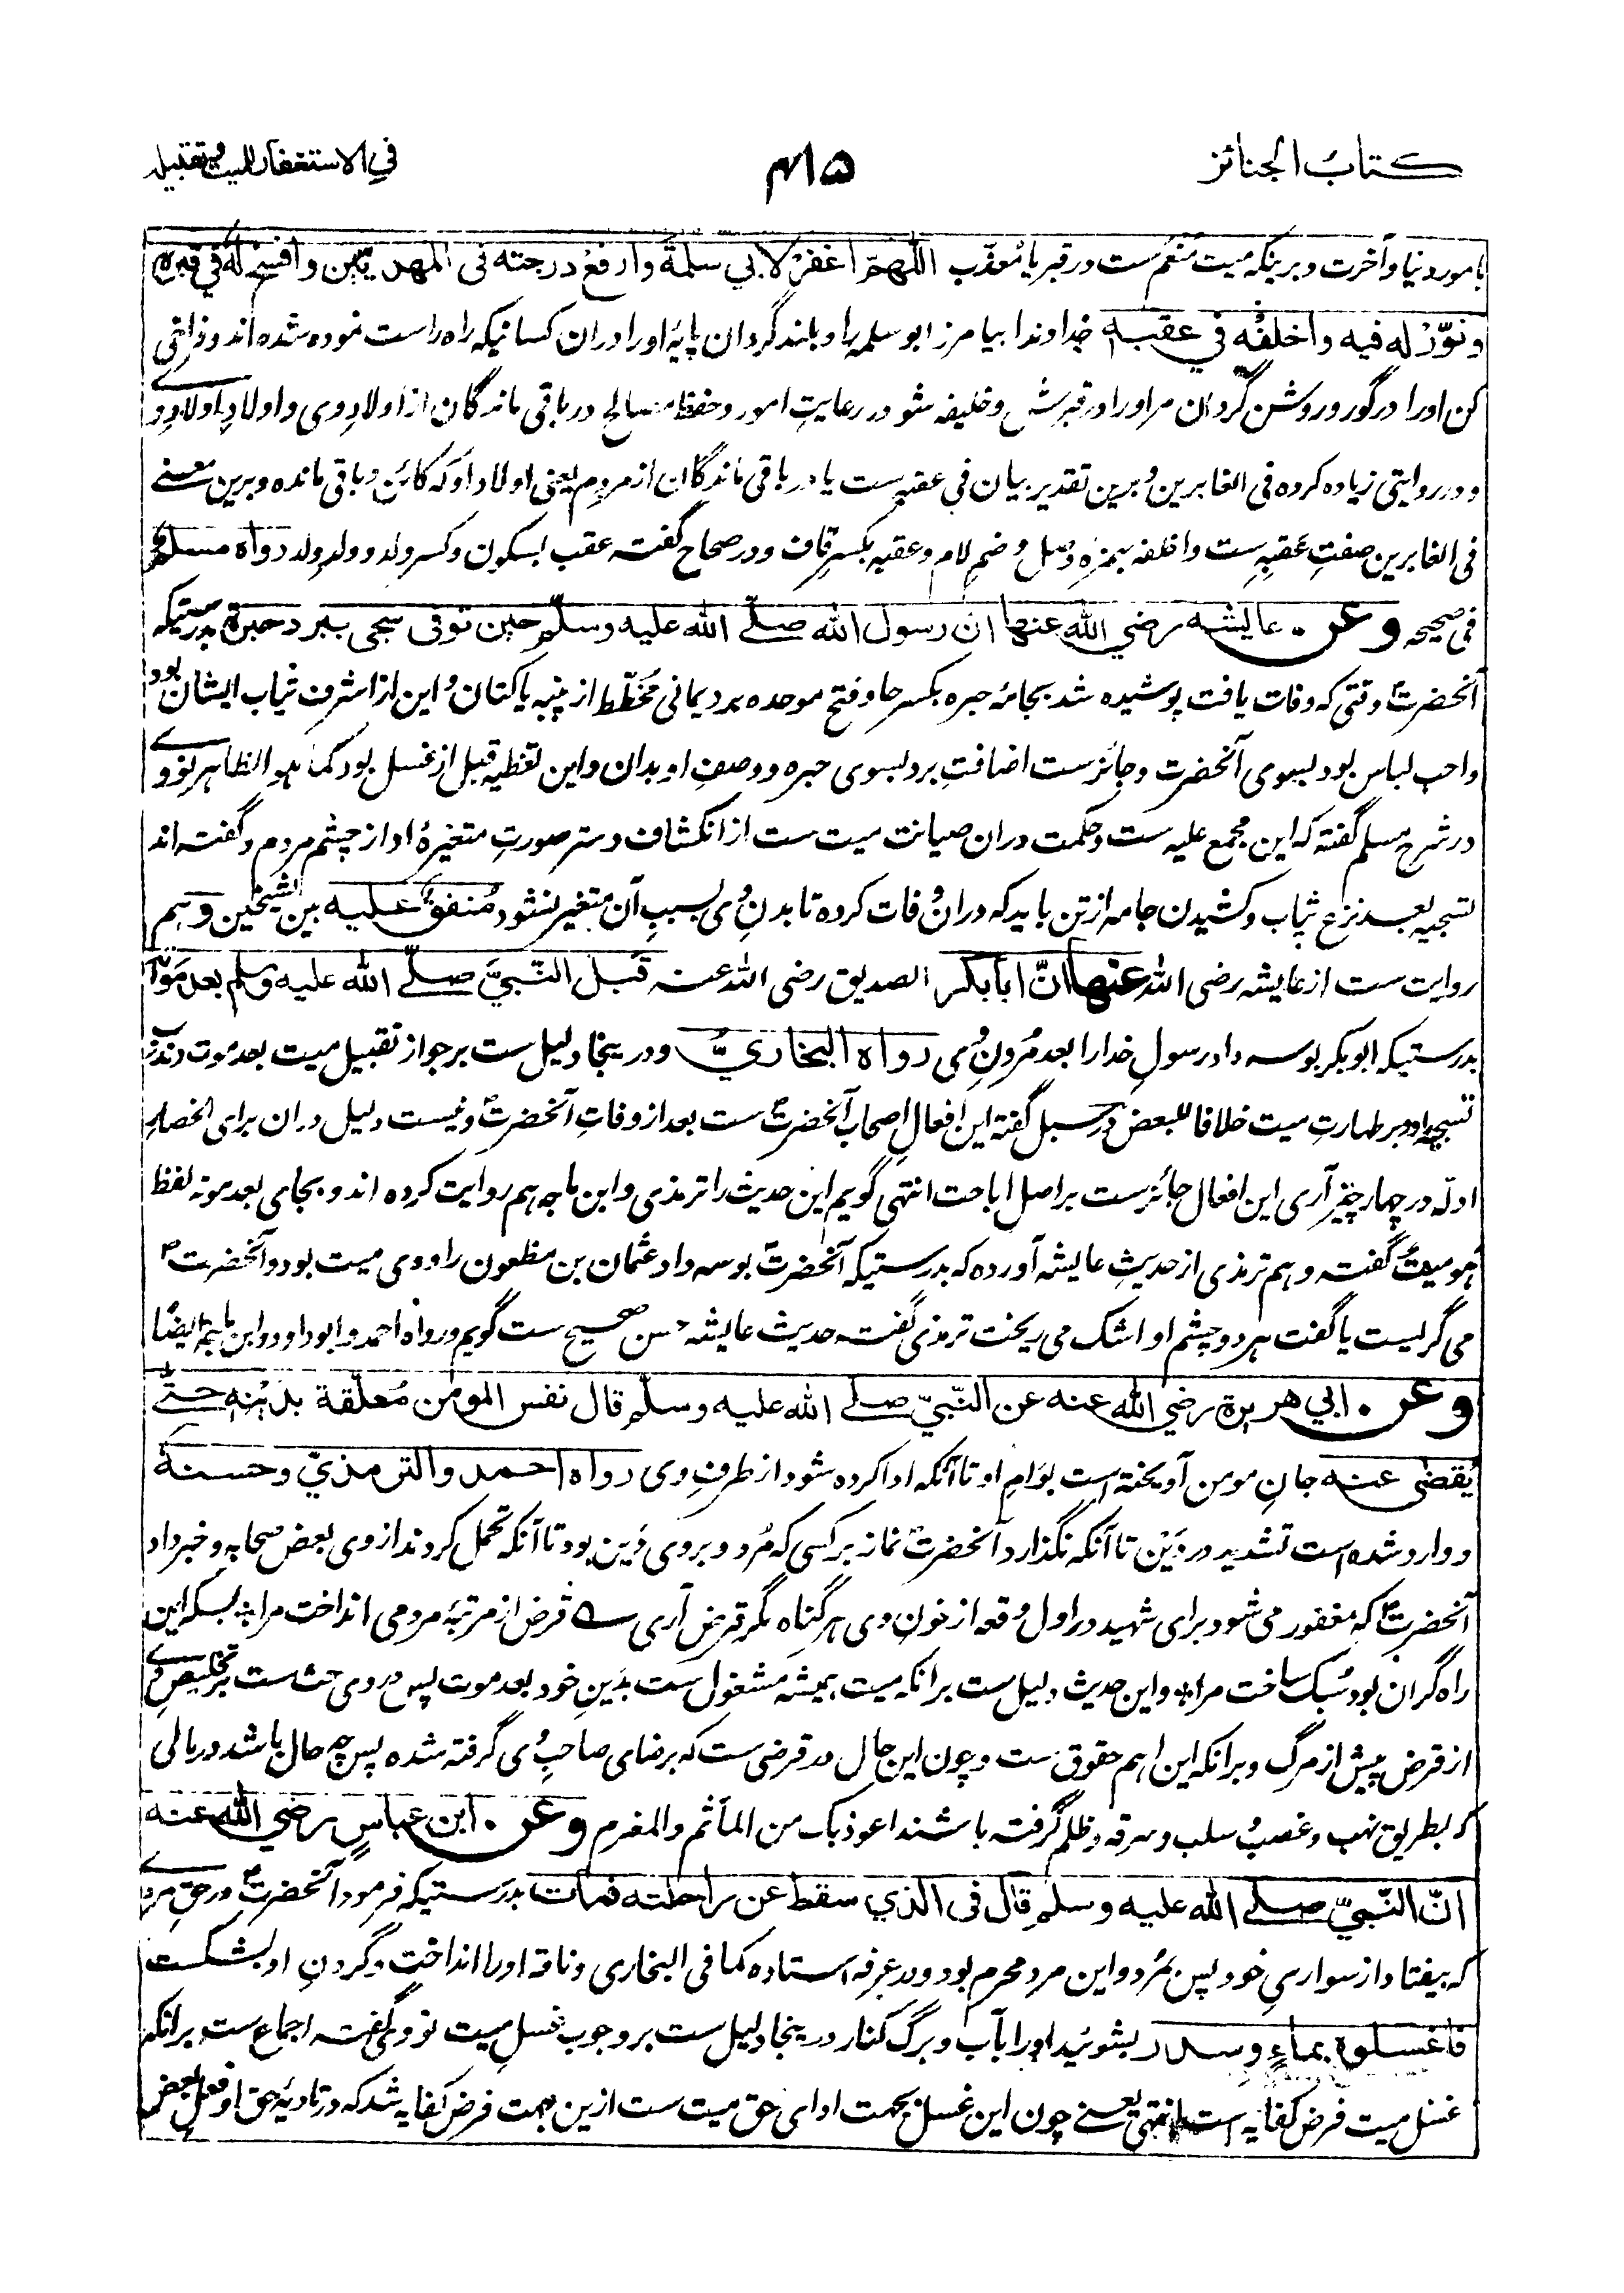 كتاب الجنائز
۴۱۵
في الاستغفار للميت وتقبيله
بامور دنیا و آخرت و برینکه میت منعم ست در قبر یا معذّب اللّٰهمّ اغفر لابي سلمة وارفع درجته فی المهدیین وافسح له في قبره
ونوّر له فيه واخلفه في عقبه خداوندا بیامرز ابو سلمه را و بلند گردان پایهٔ او را دران کسانیکه راه راست نموده شده اند و فراخی
کن اورا درگور و روشن گردان مر اورا در قبرش و خلیفه شو در رعایتِ امور و حفظ مصالح در باقی ماندگان از اولادِ وی و اولادِ اولادِ وے
و در روایتی زیاده کرده فی الغابرین و برین تقدیر بیان فی عقبه ست یا در باقی ماندگان از مردم یعنی اولاد او که کائن و باقی مانده و برین معنے
فی الغابرین صفتِ عقبِه ست و اخلفه بهمزه وصل و ضم لام و عقبه بکسر قاف و در صحاح گفته عقب بسکون و کسر ولد و ولدِ ولد رواه مسلم
فی صحیحه وعن عایشه رضي الله عنها ان رسول الله صلّے الله عليه وسلّم حين توفى سجى ببرد حبرة بدرستیکه
آنحضرتؐ وقتی که وفات یافت پوشیده شد بجامهٔ حبره بکسر حا و فتح موحده برد یمانی مخطّط از پنبه یا کتان و این از اشرف ثیاب ایشان بود
و احب لباس بود بسوی آنحضرت و جائزست اضافتِ برد بسوی حبره و وصفِ او بدان و این تغطیه قبل از غسل بود کما هو الظاهر نووے
در شرح مسلم گفته که این مجمع علیه ست و حکمت دران صیانت میت ست از انکشاف و ستر صورتِ متغیرهٔ او از چشم مردم و گفته اند
تسجیه بعد نزع ثیاب و کشیدن جامه از تن باید که دران وفات کرده تا بدنِ وی بسببِ آن متغیر نشود متفق عليه بین الشیخین و هم
روایت ست از عایشه رضی الله عنها انّ ابابكر الصديق رضی الله عنه قبل النّبيّ صلّے الله عليه وسلم بعد موته
بدرستیکه ابوبکر بوسه داد رسولِ خدا را بعد مُردنِ وی رواه البخاريّ و درینجا دلیل ست بر جواز تقبیل میت بعد موت و ندب
تسجیه او و بر طهارتِ میت خلافا للبعض در سبل گفته این افعالِ اصحاب آنحضرتؐ ست بعد از وفاتِ آنحضرتؐ و نیست دلیل دران برای انحصارِ
ادلّه در چهار چیز آری این افعال جائزست بر اصل اباحت انتهی گویم این حدیث را ترمذی و ابن ماجه هم روایت کرده اند و بجای بعد موته لفظ
هو میتٌ گفته و هم ترمذی از حدیثِ عایشه آورده که بدرستیکه آنحضرتؐ بوسه داد عثمان بن مظعون را و وی میت بود و آنحضرتؐ
می گریست یا گفت هر دو چشم او اشک می ریخت ترمذی گفته حدیث عایشه حسن صحیح ست گویم و رواه احمد و ابو داود و ابن ماجه ایضًا
وعن ابي هريرة رضي الله عنه عن النّبيّ صلے الله عليه وسلّم قال نفس المومن مُعلّقة بدينه حتّے
يُقضٰى عنه جانِ مومن آویخته است بوامِ او تا آنکه ادا کرده شود از طرفِ وی رواه احمد والترمذيّ وحسنه
و وارد شده است تشدید در دَین تا آنکه نگذارد آنحضرتؐ نماز بر کسی که مُرد و بروی دَین بود تا آنکه تحمل کردند از وی بعض صحابه و خبر داد
آنحضرتؐ که مغفور می شود برای شهید در اول دفعه از خونِ وی هر گناه مگر قرض آری ؎ قرض از مرتبهٔ مردمی انداخت مرا ٭ بسکه این
راه گران بود سُبک ساخت مرا ٭ و این حدیث دلیل ست برانکه میت همیشه مشغول ست بدَینِ خود بعد موت پس در وی حث ست بر تخلیص وے
از قرض پیش از مرگ و برانکه این اهم حقوق ست و چون این حال در قرضی ست که برضای صاحبِ وی گرفته شده پس چه حال باشد در مالی
که بطریق نهب و غصب و سلب و سرقه و ظلم گرفته باشند اعوذ بک من المأثم والمغرم وعن ابن عباسٍ رضي الله عنه
انّ النّبيّ صلے الله عليه وسلم قال فی الذي سقط عن راحلته فمات بدرستیکه فرمود آنحضرتؐ در حقِ مردے
که بیفتاد از سواریِ خود پس بمُرد و این مرد محرم بود و در عرفه استاده کما فی البخاری و ناقه او را انداخت و گردنِ او بشکست
فاغسلوه بماءٍ وسدر بشوئید او را بآب و برگ کنار درینجا دلیل ست بر وجوب غسلِ میت نووی گفته اجماع ست برانکه
غسل میت فرض کفایه است انتهی یعنے چون این غسل بجهت ادای حق میت ست ازین جهت فرض کفایه شد که در تادیهٔ حق او فعل بعض